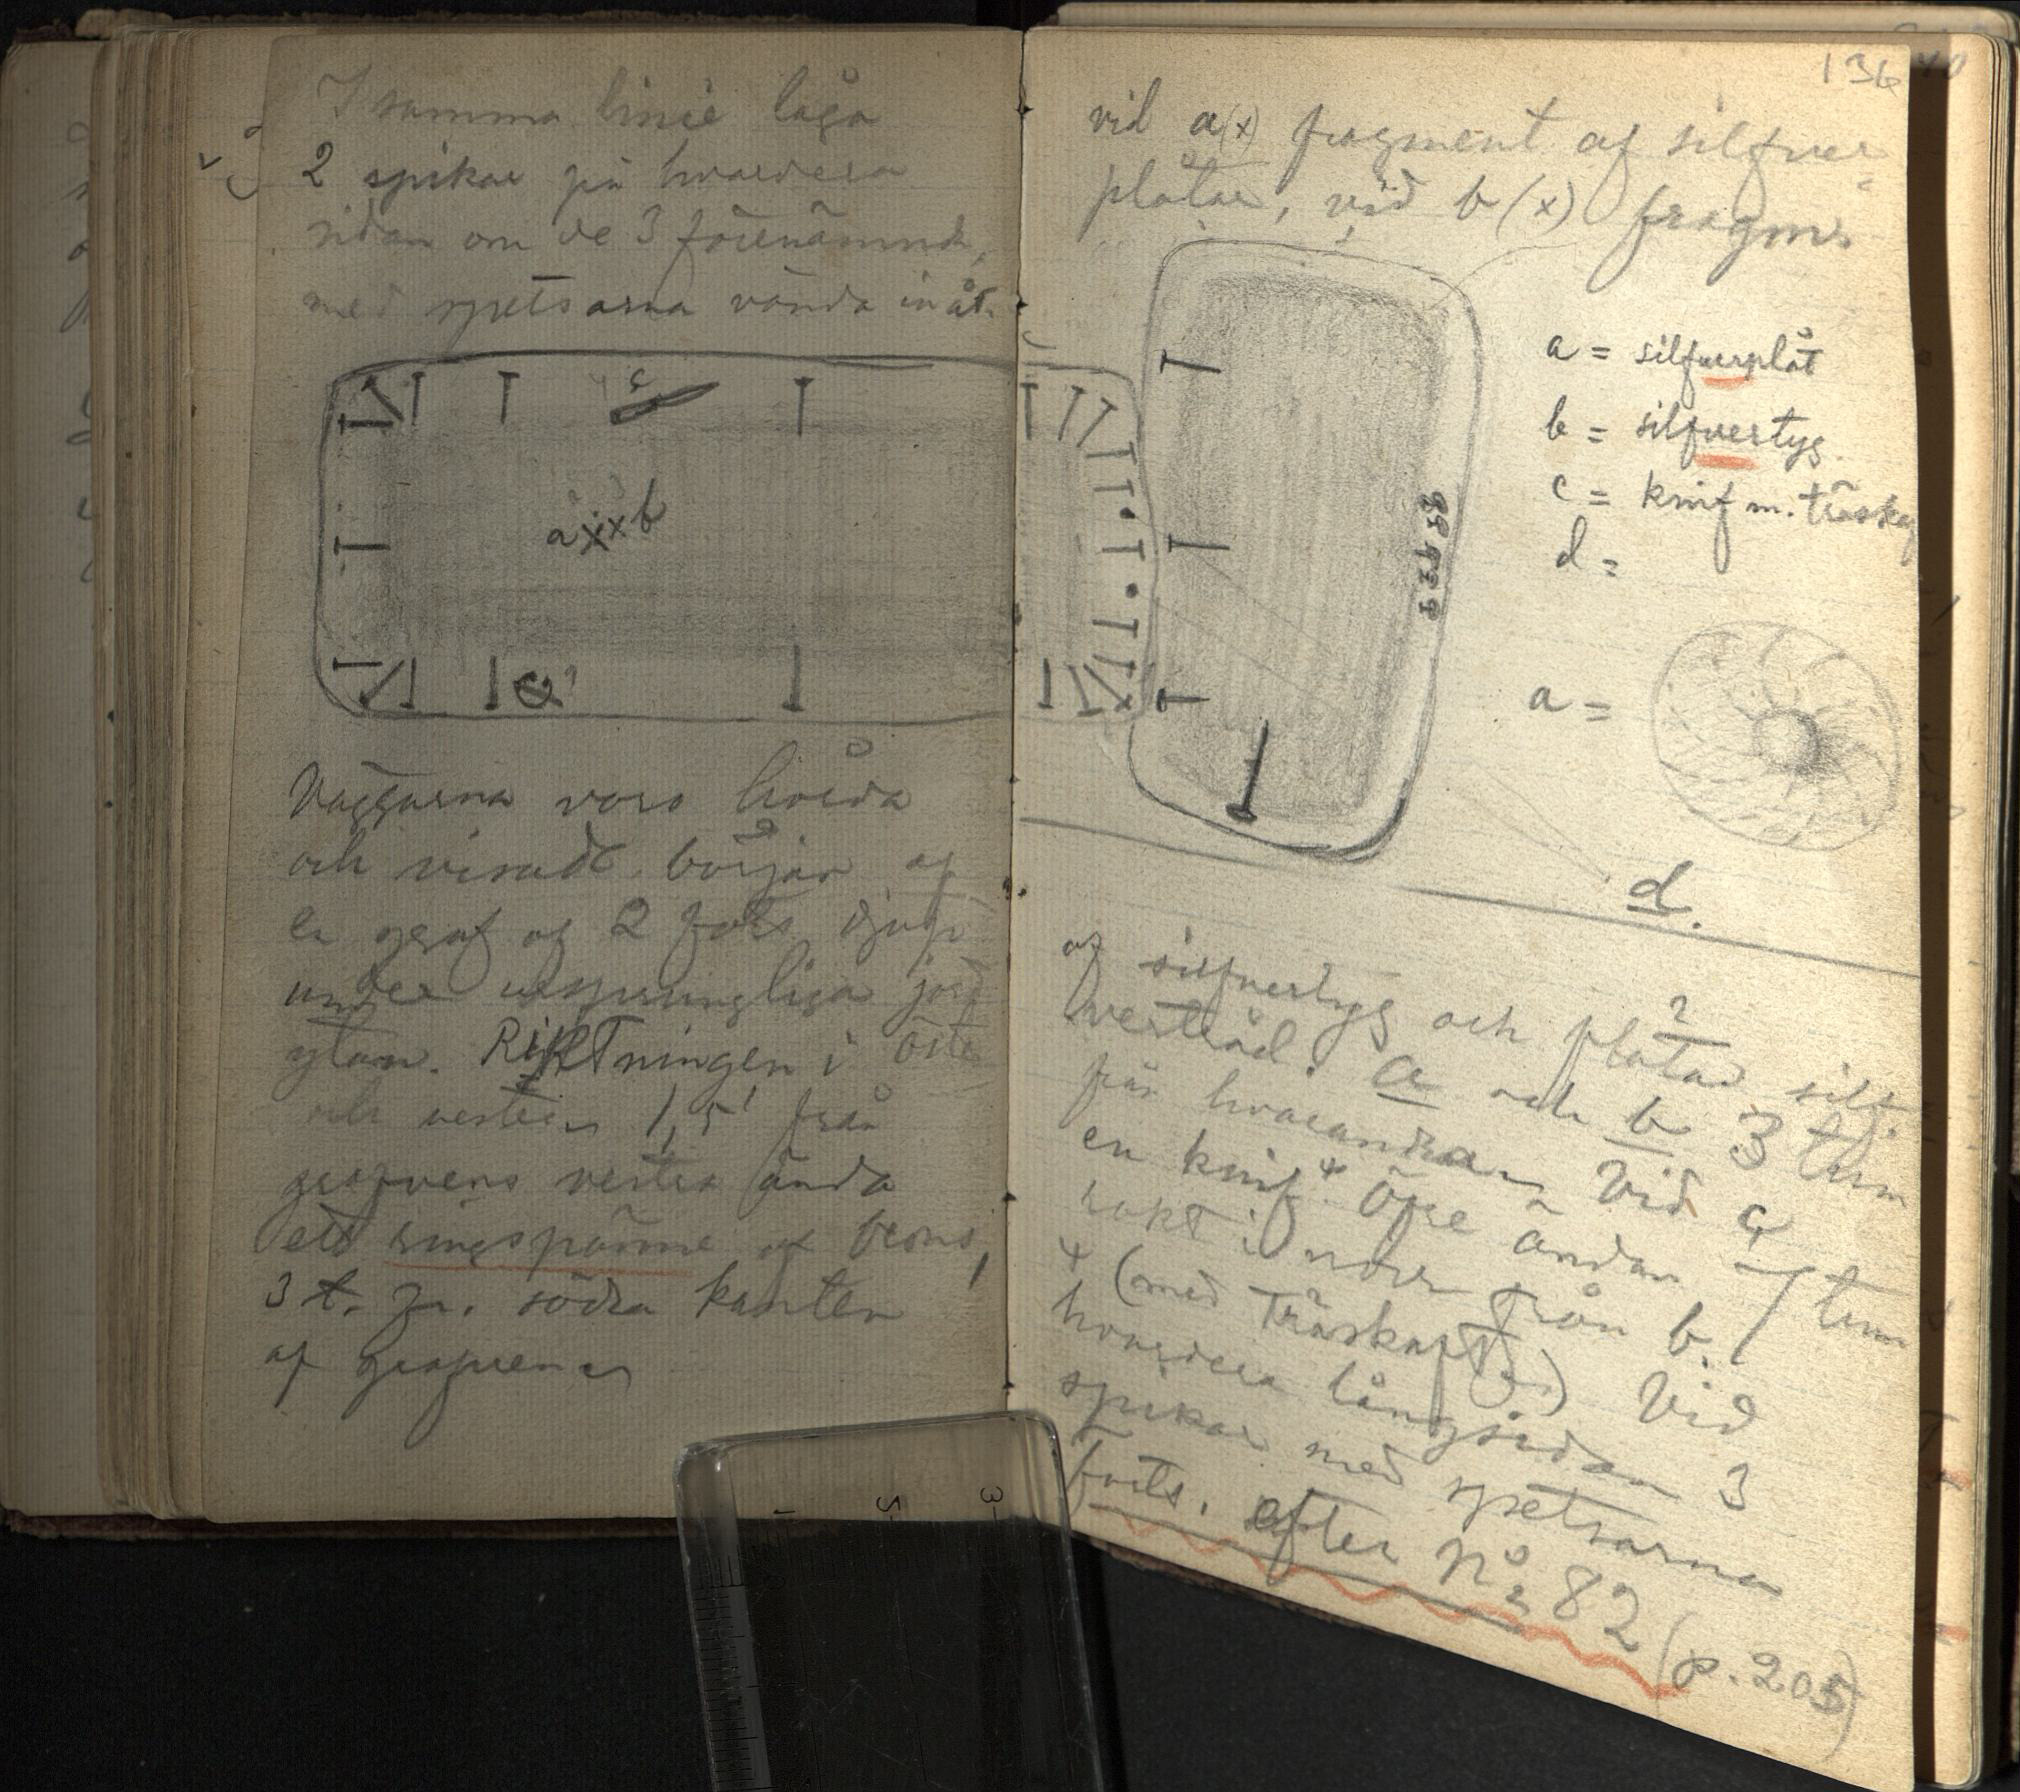 I samma linie låga
2 spikar på hvardera
sidan om de 3 förenämnda,
med spetsarna vända inåt.
c
a x x b
Väggarna voro hårda
och visade början af
en graf af 2 fots djup
under ursprungliga jord
ytan. Riktningen i öster
och vester. 1,5' från
grafvens vestra ända
ett ringspänne af brons,
3 t. fr. södra kanten
af grafven.
136
vid a(x) fragment af silfver
plåtar, vid b(x) fragm.
a = silfverplåt
b = silfvertyg
c = knif m. träskaf
d =
a =
d.
af silfvertyg och plåtar silf.
vertråd. a och b 3 tum
från hvarandra. Vid c
en knif. + Öfre ändan 7 tum
rakt i norr från b.
+ (med träskaft) Vid
hvardera långsidan 3
spikar med spetsarna
forts. efter No 82 (p. 205)